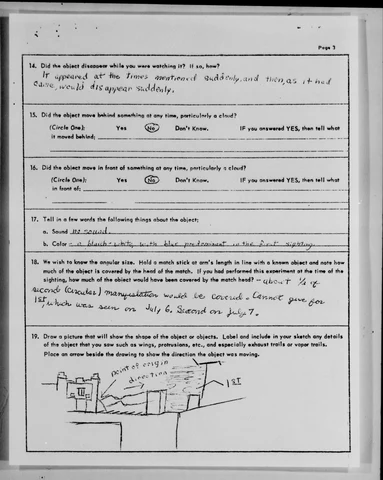 Page 3
14. Did the object disappear while you were watching it? If so, how?
It appeared at the times mentioned suddenly, and then, as it had
came, would disappear suddenly.
15. Did the object move behind something at any time, particularly a cloud?
(Circle One): Yes No Don't Know. IF you answered YES, then tell what
it moved behind:
16. Did the object move in front of something at any time, particularly a cloud?
(Circle One): Yes No Don't Know. IF you answered YES, then tell what
in front of:
17. Tell in a few words the following things about the object:
a. Sound no sound.
b. Color a bluish-white with blue predominant in the first sighting.
18. We wish to know the angular size. Hold a match stick at arm's length in line with a known object and note how
much of the object is covered by the head of the match. If you had performed this experiment at the time of the
sighting, how much of the object would have been covered by the match head? - about 1/4 of
second (circular) manifestation would be covered. Cannot give for
1ST, which was seen on July 6. Second on July 7.
19. Draw a picture that will show the shape of the object or objects. Label and include in your sketch any details
of the object that you saw such as wings, protrusions, etc., and especially exhaust trails or vapor trails.
Place an arrow beside the drawing to show the direction the object was moving.
point of origin
direction
1ST